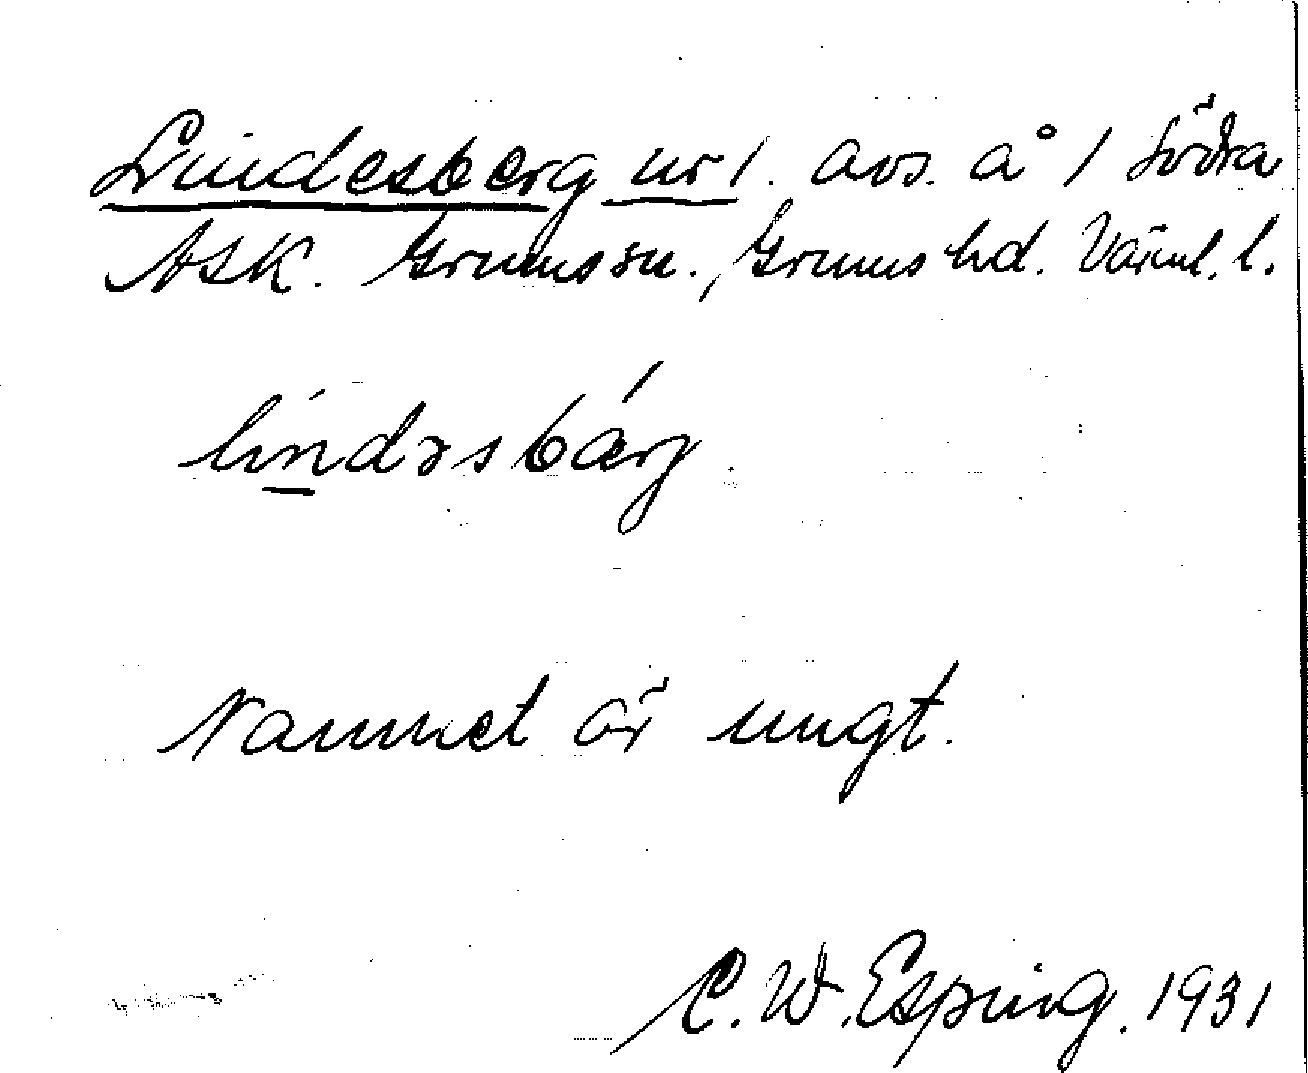 Lindesberg nr 1. avs. å 1 Södra
ASK. Grums sn., Grums hd. Värml. l.
lindəsbärj
Namnet är ungt.
C. W. Esping. 1931